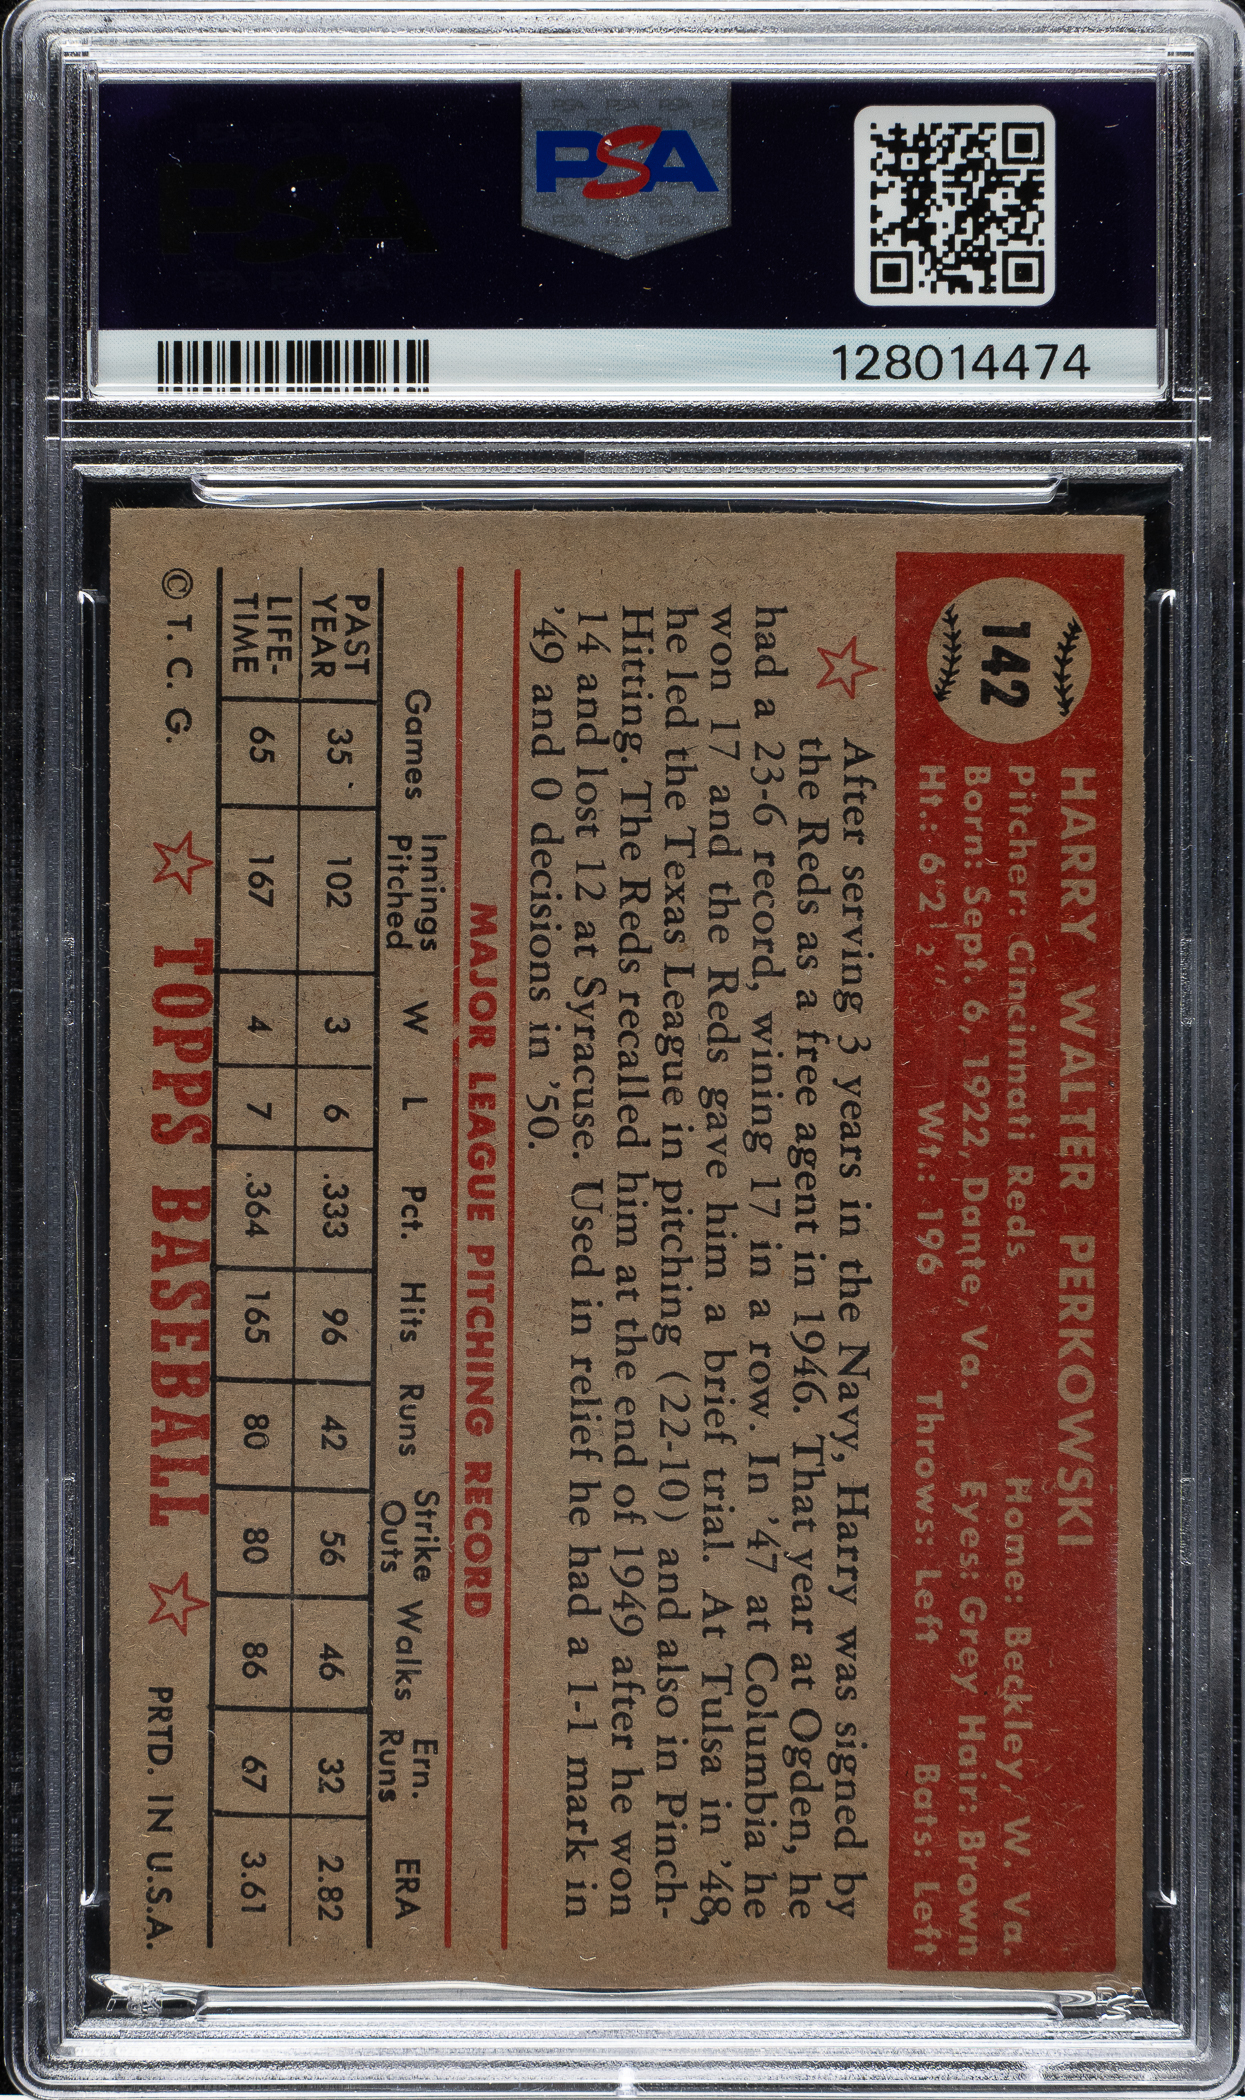 PSA
128014474
142
HARRY WALTER PERKOWSKI
Pitcher: Cincinnati Reds Home: Beckley, W. Va.
Born: Sept. 6, 1922, Dante, Va. Eyes: Grey Hair: Brown
Ht.: 6'2½" Wt.: 196 Throws: Left Bats: Left
After serving 3 years in the Navy, Harry was signed by
the Reds as a free agent in 1946. That year at Ogden, he
had a 23-6 record, wining 17 in a row. In '47 at Columbia he
won 17 and the Reds gave him a brief trial. At Tulsa in '48,
he led the Texas League in pitching (22-10) and also in Pinch-
Hitting. The Reds recalled him at the end of 1949 after he won
14 and lost 12 at Syracuse. Used in relief he had a 1-1 mark in
'49 and 0 decisions in '50.
MAJOR LEAGUE PITCHING RECORD
Games Innings Pitched W L Pct. Hits Runs Strike Outs Walks Ern. Runs ERA
PAST YEAR 35 102 3 6 .333 96 42 56 46 32 2.82
LIFE-TIME 65 167 4 7 .364 165 80 80 86 67 3.61
© T. C. G. TOPPS BASEBALL PRTD. IN U.S.A.